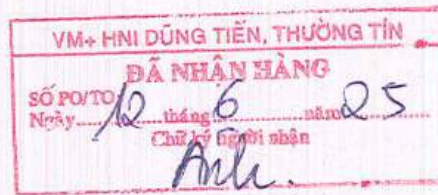 VM+ HNI DŨNG TIẾN, THƯỜNG TÍN
ĐÃ NHẬN HÀNG
SỐ PO/TO
Ngày.....12.....tháng 6.....năm 25
Chữ ký người nhận
Anh.